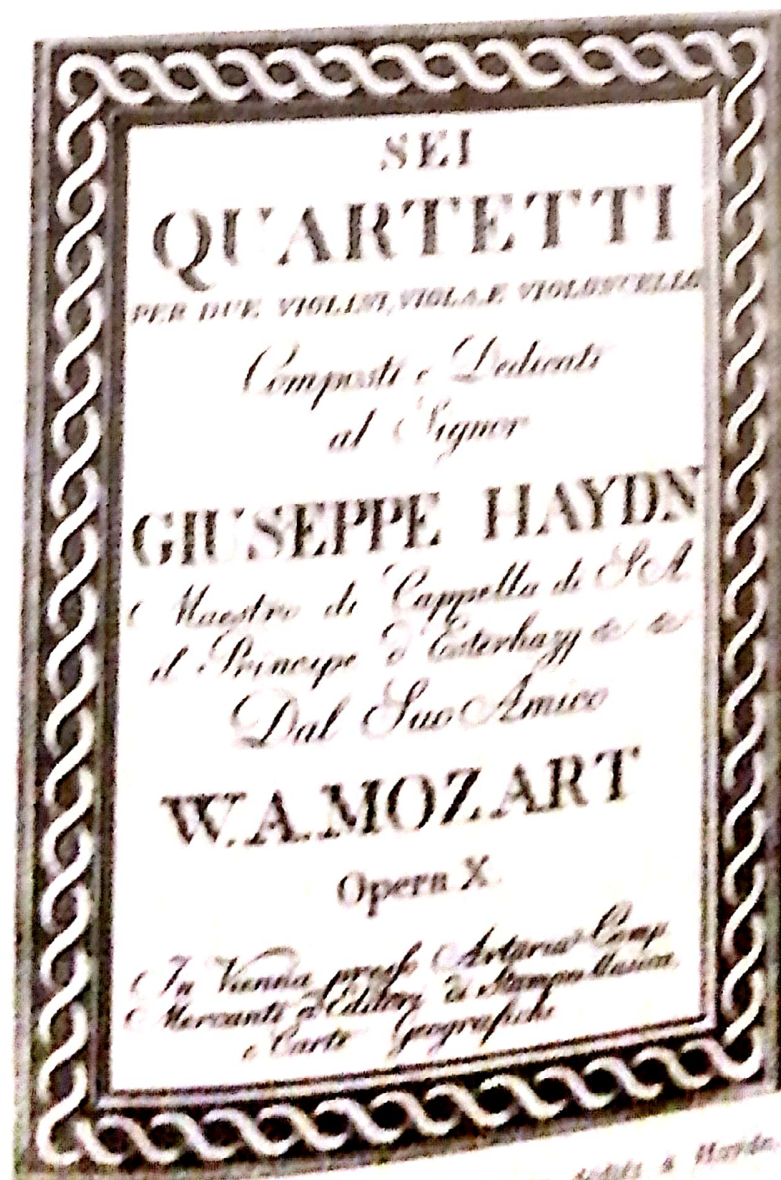 SEI
QUARTETTI
PER DUE VIOLINI, VIOLA, E VIOLONCELLO
Composti e Dedicati
al Signor
GIUSEPPE HAYDN
Maestro di Cappella di S.A.
il Principe d'Esterhazy &c &c
Dal Suo Amico
W.A.MOZART
Opera X.
In Vienna presso Artaria Comp.
Mercanti ed Editori di Stampe Musica,
e Carte Geografiche
a Haydn